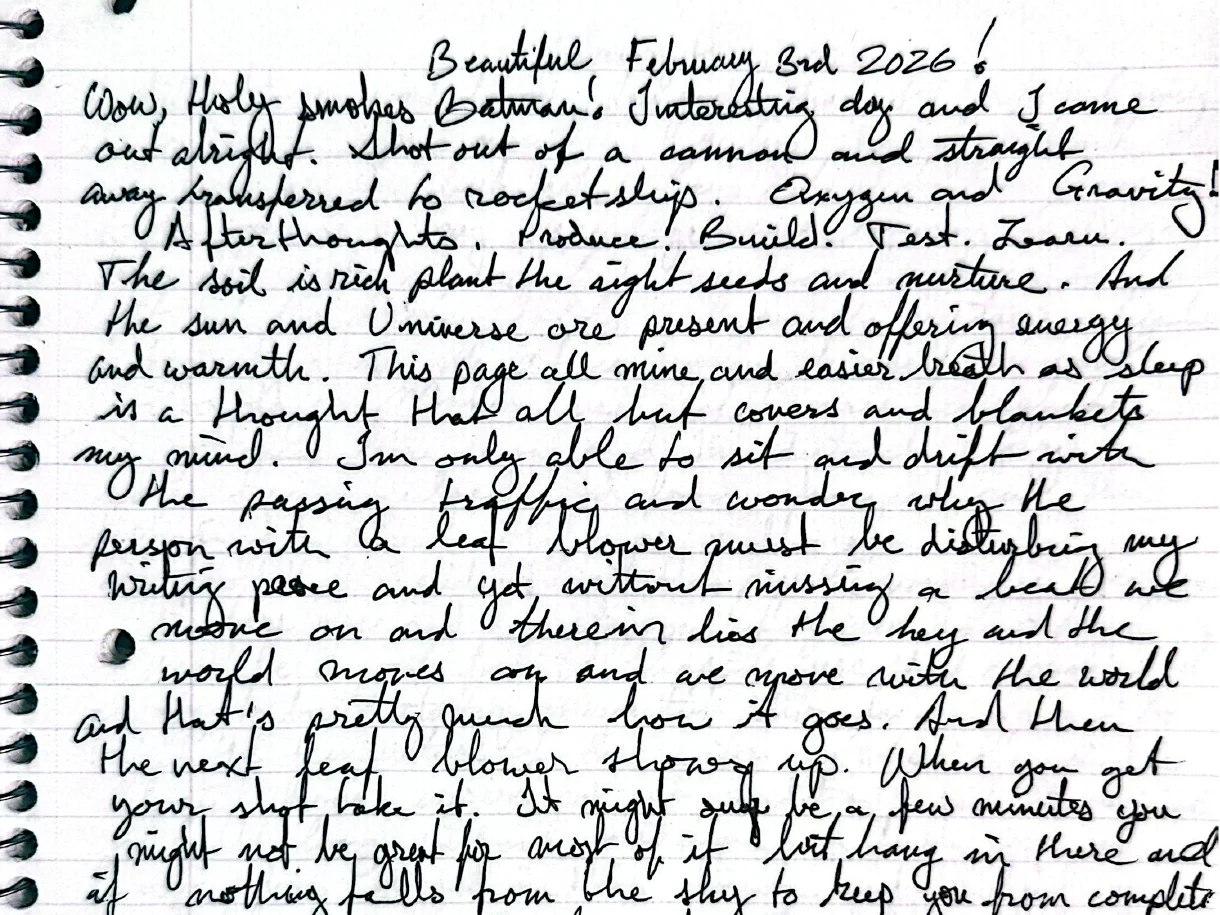 Beautiful February 3rd 2026!
Wow, Holy smokes Batman! Interesting day and I came
out alright. Shot out of a cannon and straight
away transferred to rocketships. Oxygen and Gravity!
Afterthoughts. Produce. Build. Test. Learn.
The soil is rich plant the right seeds and nurture. And
the sun and Universe are present and offering energy
and warmth. This page all mine and easier breath as sleep
is a thought that all but covers and blankets
my mind. I'm only able to sit and drift with
the passing traffic and wonder why the
person with a leaf blower must be disturbing my
writing peace and yet without missing a beat we
move on and therein lies the key and the
world moves on and we move with the world
and that's pretty much how it goes. And then
the next leaf blower shows up. When you get
your shot take it. It might be a few minutes you
might not be great for most of it but hang in there and
if nothing falls from the sky to keep you from complete